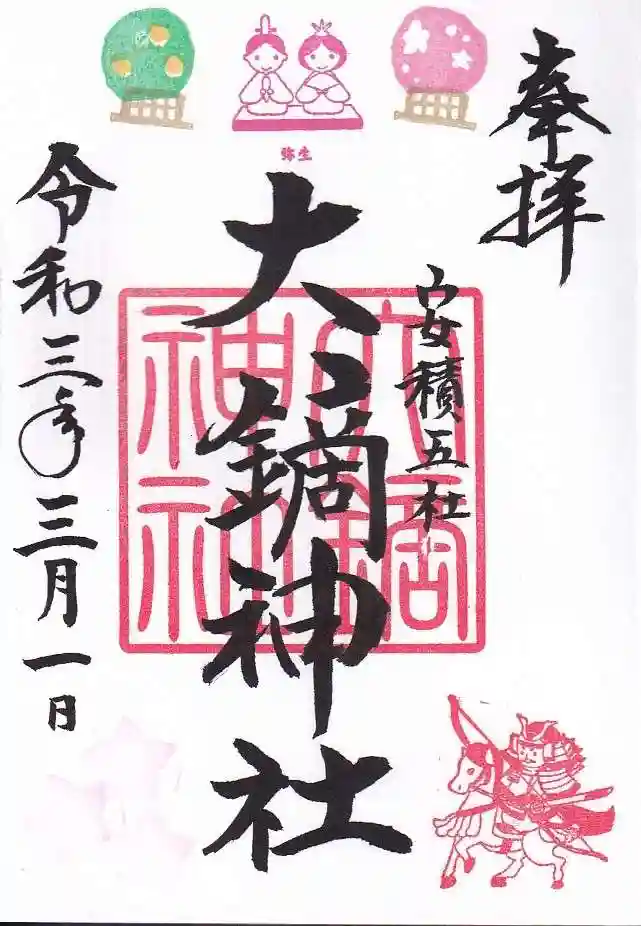 奉拝
安積五社
大鏑神社
大鏑神社
令和三年三月一日
弥生